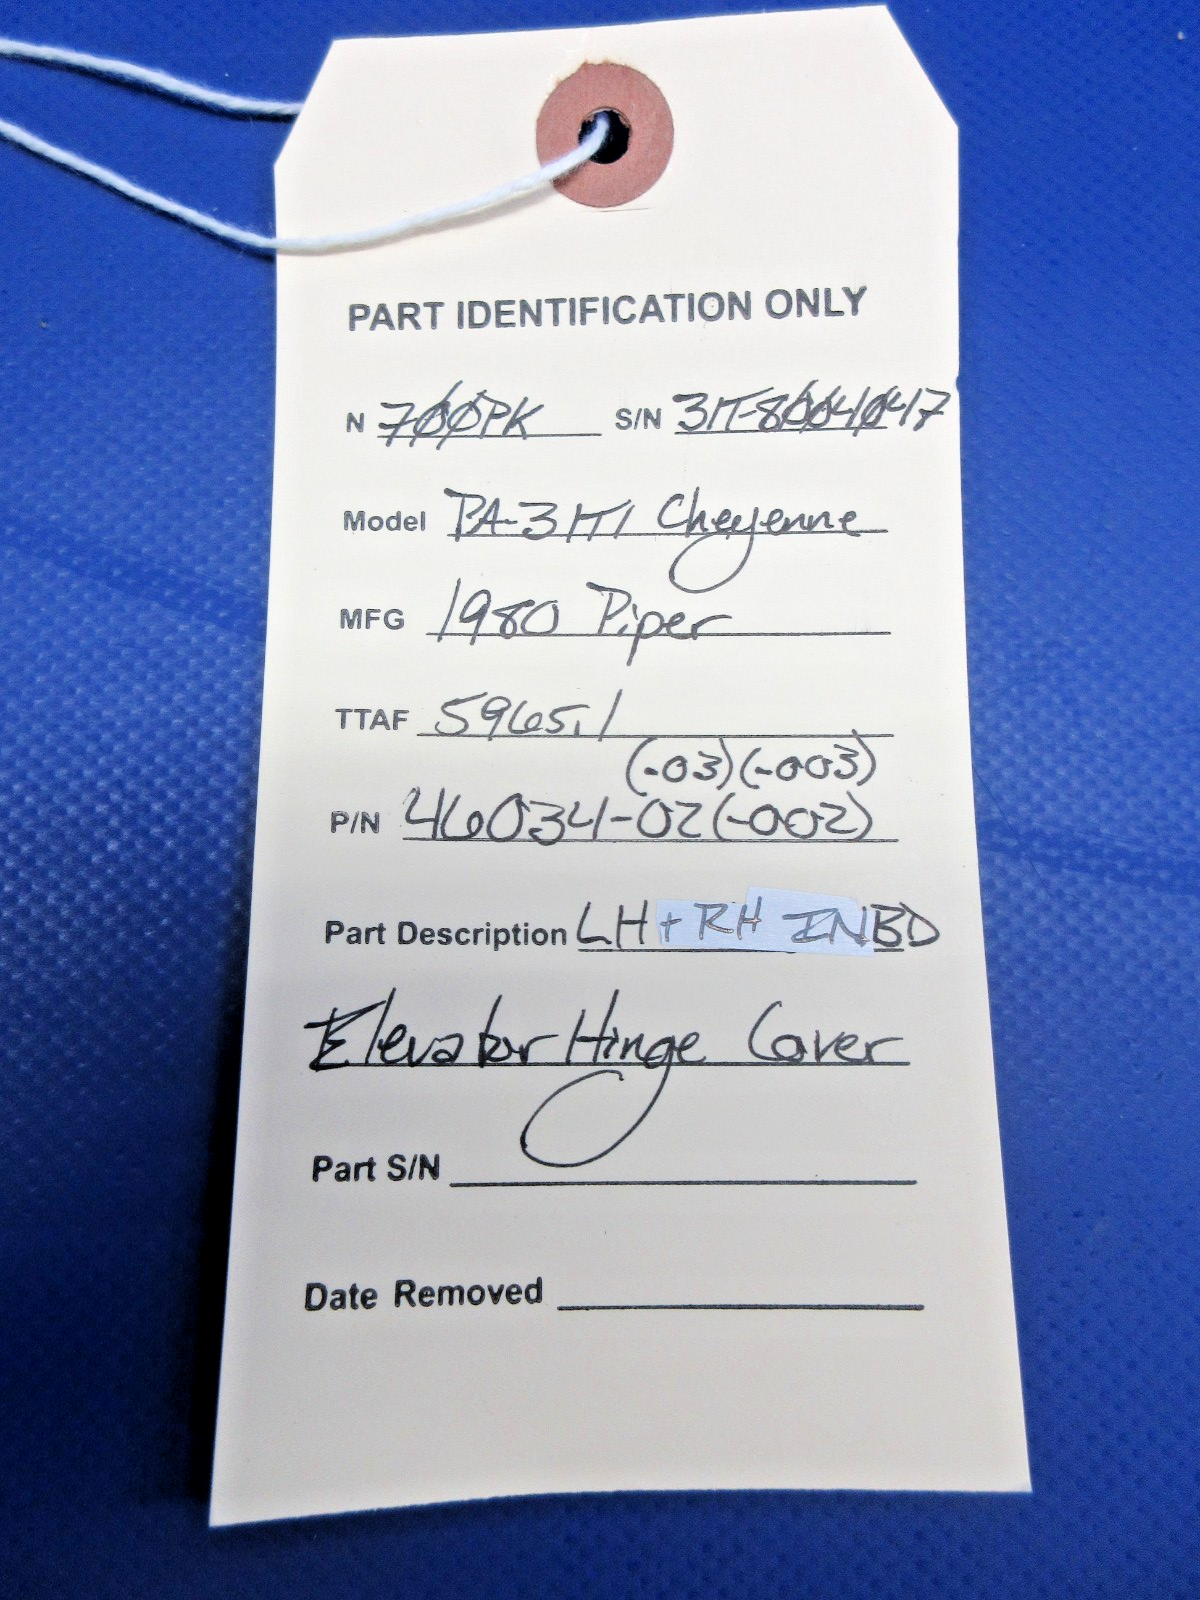 PART IDENTIFICATION ONLY
N 700PK S/N 31T-8004047
Model PA-31T1 Cheyenne
MFG 1980 Piper
TTAF 5965.1
(-03)(-003)
P/N 46034-02(-002)
Part Description LH + RH INBD
Elevator Hinge Cover
Part S/N
Date Removed